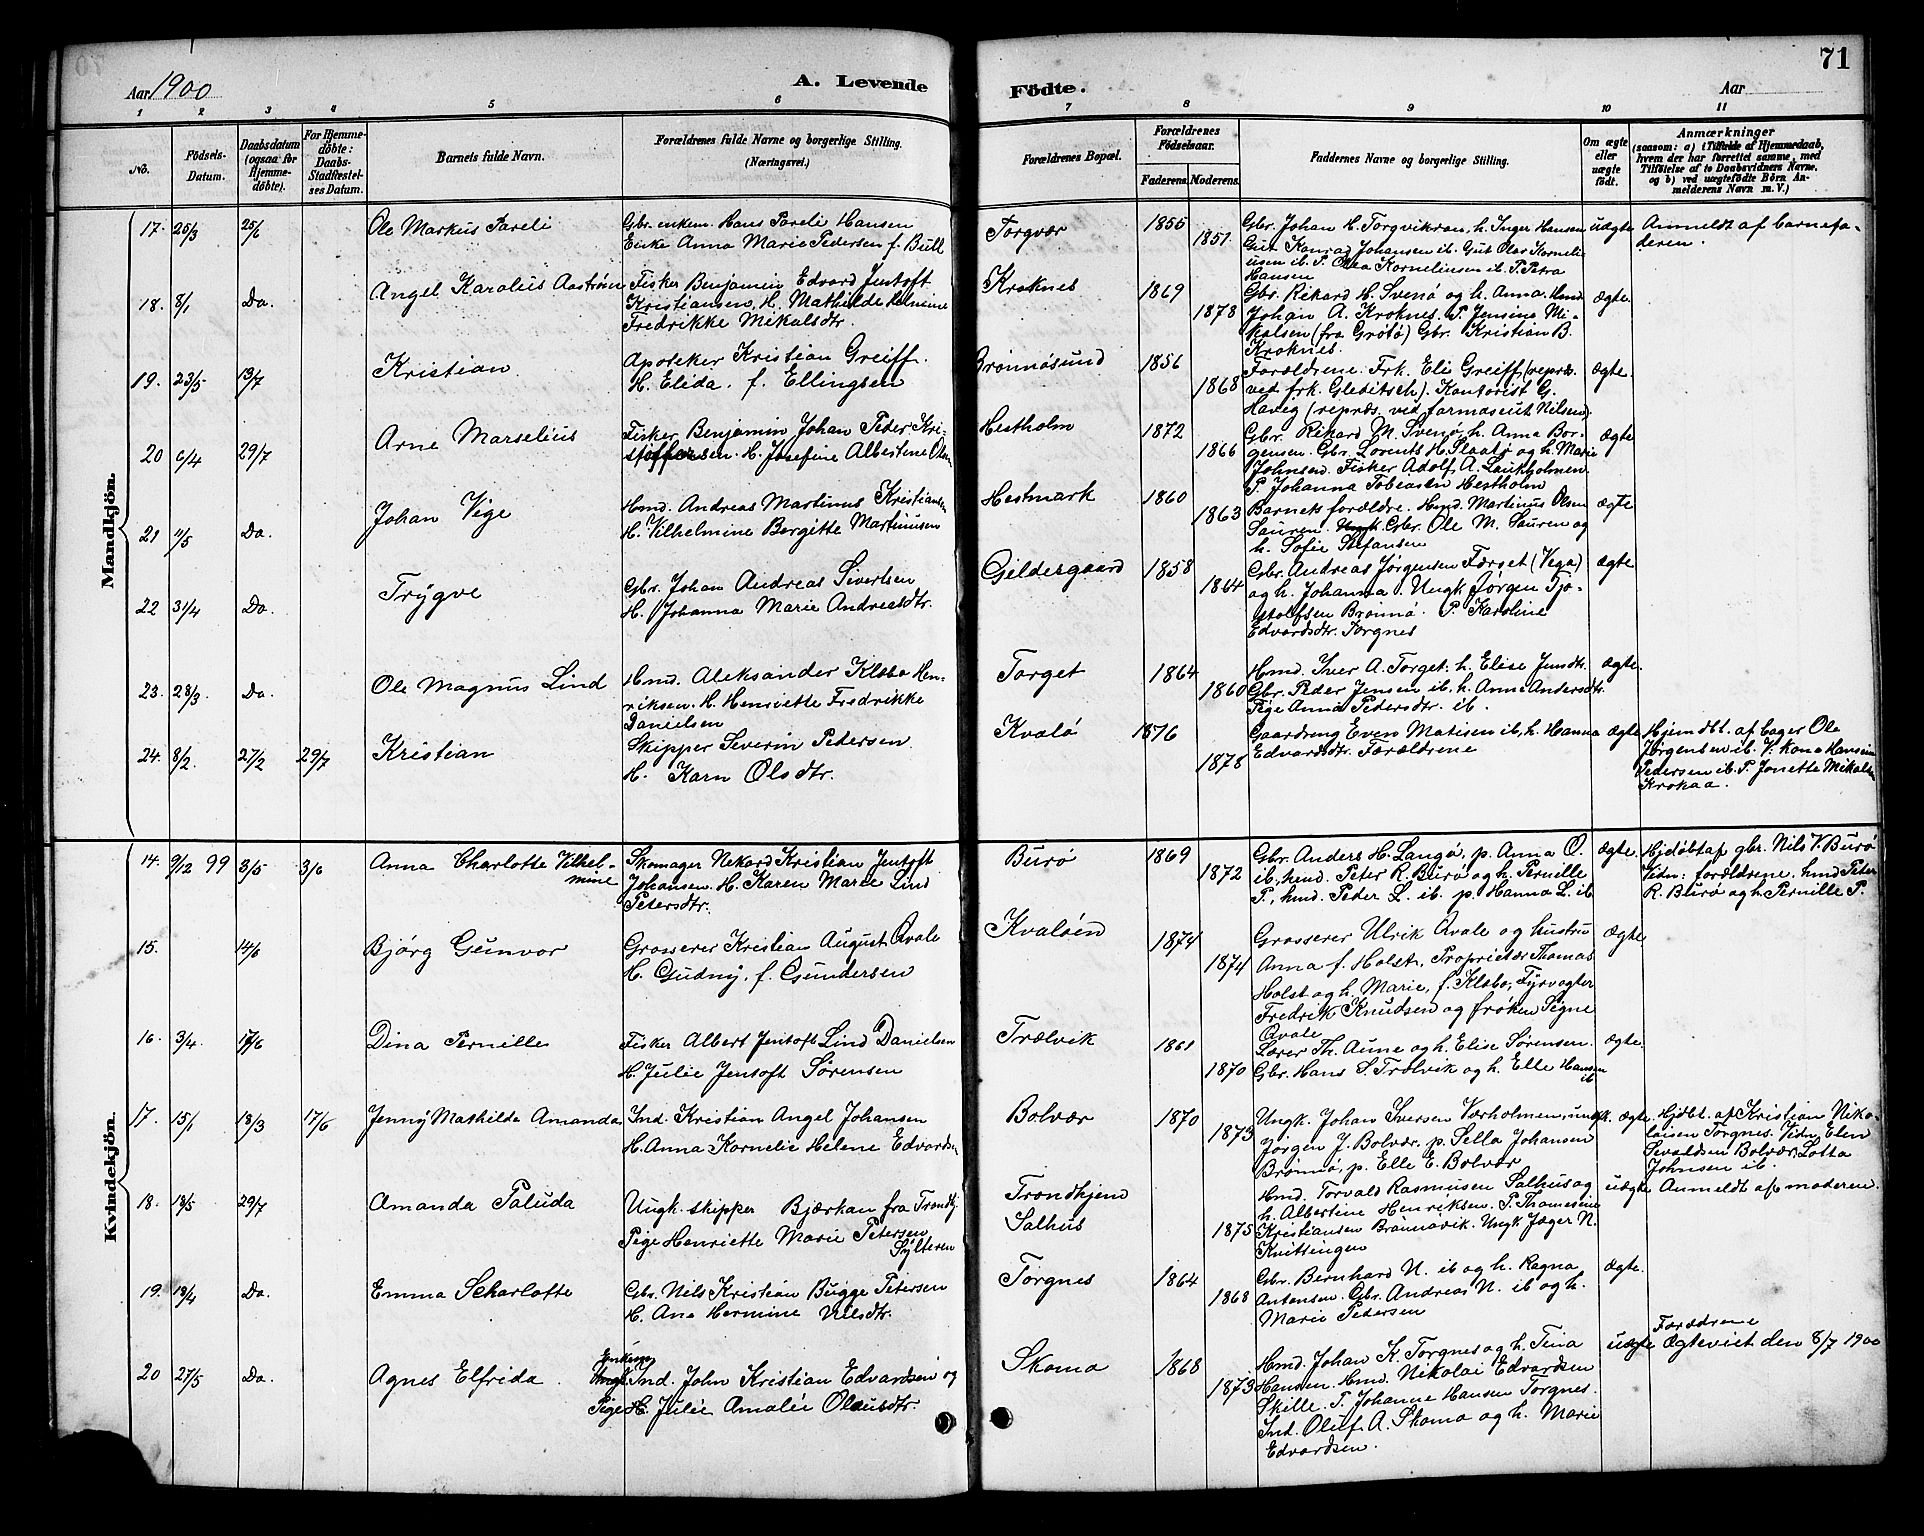 71
Aar 1900
A. Levende
Födte.
Aar
1 2 3 4 5 6 7 8 9 10 11
No.
Födsels-Datum.
Daabsdatum (ogsaa for Hjemme-döbte).
For Hjemme-döbte: Daabs-Stadfæstel-ses Datum.
Barnets fulde Navn.
Forældrenes fulde Navne og borgerlige Stilling.
(Næringsvei.)
Forældrenes Bopæl.
Forældrenes Födselsaar.
Faderens. Moderens.
Faddernes Navne og borgerlige Stilling.
Om ægte eller uægte födt.
Anmærkninger
(saasom: a) i Tilfælde af Hjemmedaab,
hvem der har forrettet samme, med
Tilföielse af to Daabsvidners Navne.
og b) ved uægtefödte Börn An-
melderens Navn m. V.)
Mandkjön.
17. 25/3 25/6 Ole Markus Pareli
Gbr. enkem. Hans Pareli Hansen
Enke Anna Marie Pedersen f. Bull
Torgvær 1855 1851
Gbr. Johan H. Torgvikran, h. Inger Hansen
Gut Konrad Johansen ib. Gut Olav Korneli-
usen ib. P. Olea Kornelinsen ib. P. Petra
Hansen
uægte Anmeldt af barnefa-
deren.
18. 8/1 Do. Angel Karolius Aastrøm
Fisker Benjamin Edvard Jentoft
Kristiansen, H. Mathilde Helmine
Fredrikke Mikalsdtr.
Kroknes 1869 1878
Gbr. Rikard H. Svenö og h. Anna. Hmd.
Johan A. Kroknes. P. Jensine Mi-
kalsen (fra Grötö) Gbr. Kristian B.
Kroknes.
ægte.
19. 23/5 13/7 Kristian
Apoteker Kristian Greiff.
H. Elida. f. Ellingsen
Brönnösund 1856 1868
Forældrene. Frk. Eli Greiff (repræs.
ved frk. Gleditsch). Kontorist G.
Haveg (repræs. ved farmaseut Nilsen).
ægte.
20 6/4 29/7 Arne Marselius
Fisker Benjamin Johan Peder Kri-
stoffersen. H. Josefine Albertine Olsen
Hestholm 1872 1866
Gbr. Rikard M. Svenö, h. Anna Bor-
gensen. Gbr. Lorents H. Slaatö og h. Marie
Johnsen. Fisker Adolf A. Laukholmen.
P. Johanna Tobeasen Hestholm
ægte
21 11/5 Do. Johan Vige
Hmd. Andreas Martinus Kristiansen
H. Vilhelmine Bergitte Martinusen
Hestmark 1860 1863
Barnets forældre. Hmd. Martinus Olsen
Sauren. Gbr. Ole M. Sauren og
h. Sofie Stefansen
ægte
22 31/4 Do. Trygve
Gbr. Johan Andreas Sivertsen
H. Johanna Marie Andreasdtr.
Gildergaard 1858 1864
Gbr. Andreas Jörgensen Færset (Vega)
og h. Johanna. Ungk Jörgen Tjö-
stolfsen Brönnö. P. Karoline
Edvardsdtr. Torgnes
ægte
23. 28/3. Do. Ole Magnus Lind
Hmd. Aleksander Klæbo Hen-
riksen. H. Henriette Fredrikke
Danielsen
Torget 1864 1860
Hmd. Iver A. Torget. h. Elise Jensdtr.
Gbr. Peder Jensen ib. h. Anne Andersdtr.
Pige Anna Pedersdtr. ib.
ægte.
24. 8/2. 27/2 29/7 Kristian
Skipper Severin Petersen.
H. Karn Olsdtr.
Kvalö 1876 1878
Gaardmg Even Matisen ib, h. Hanna
Edvardsdtr. Forældrene
ægte
Hjemdbt. af bager Ole
Jörgensen ib. V. kona Hansine
Pedersen ib. P. Jonette Mikalsen
Krokaa.
Kvindekjön.
14. 9/12 99 3/5 3/6 Anna Charlotte Vilhel-
mine
Skomager Nekard Kristian Jentoft
Johansen. H. Karen Marie Lind
Petersdtr.
Burö 1869 1872
Gbr. Anders H. Langö, p. Anna O.
ib, hmd. Peter R. Burö og h. Pernille
P., hmd. Peder L. ib. p. Hanna L. ib
ægte.
Hjdöbt af gbr. Nils V. Burö
Vidn: forældrene, hmd Peter
R. Burö og h. Pernille P.
15. 14/6 Bjórg Gunvor
Grosserer Kristian August Qvale
H. Gudny, f. Gundersen
Kvalöen 1874 1874
Grosserer Ulrik Qvale og hustru
Anna f. Holst, Proprietær Thomas
Holst og h. Marie, f. Klæbo, Fyrvogter
Fredrik Knudsen og fröken Signe
Qvale
ægte
16. 3/4 17/6 Dina Pernille
Fisker Albert Jentoft Lind Danielsen
H. Julie Jentoft Sörensen
Trælvik 1861 1870
Lærer Th. Aune og h. Elise Sörensen.
Gbr. Hans S. Trælvik og h. Elle Hansen
ib
ægte.
17. 15/1 18/3 17/6 Jenny Mathilde Amanda
Ind. Kristian Angel Johansen
H. Anna Kornelie Helene Edvardsen
Bolvær 1870 1873
Ungk. Johan Iversen Værholmen, ungk.
Jörgen J. Bolvær. p. Sella Johansen
Brönnö, p. Elle E. Bolvær
ægte.
Hjdbt. af Kristian Niko-
laisen Torgnes. Vidn. Elen
Sevaldsen Bolvær, Lotta
Johnsen ib.
18. 13/5 29/7 Amanda Paluda
Ungk. skipper Bjærkan fra Trondhj.
Pige Henriette Marie Petersen
Sylteren
Trondhjem
Salhus
1875
Hmd. Torvald Rasmusen Salhus og
h. Albertine Henriksen. P. Thomasine
Kristiansen Brönnövik. Ungk. Jæger N.
Knittingen
uægte Anmeldt af moderen.
19. 13/4 Do. Emma Scharlotte
Gbr. Nils Kristian Bugge Petersen
H. Ane Hermine Nilsdtr.
Torgnes 1864 1868
Gbr. Bernhard N. ib og h. Ragna
Antonsen. Gbr. Andreas N. ib og h.
Marie Pedersen
ægte.
20 27/5 Do. Agnes Elfrida
Enkem.
Ind. John Kristian Edvardsen og
Pige H. Julie Amalie Olausdtr.
Skomo 1868 1873
Hmd. Johan K. Torgnes og h. Tina
Hansen. Hmd. Nikolai Edvardsen
Skille. P. Johanne Hansen Torgnes.
Ind. Oluf A. Skomo og h. Marie
Edvardsen.
uægte
Forældrene
Ægteviet den 8/7 1900